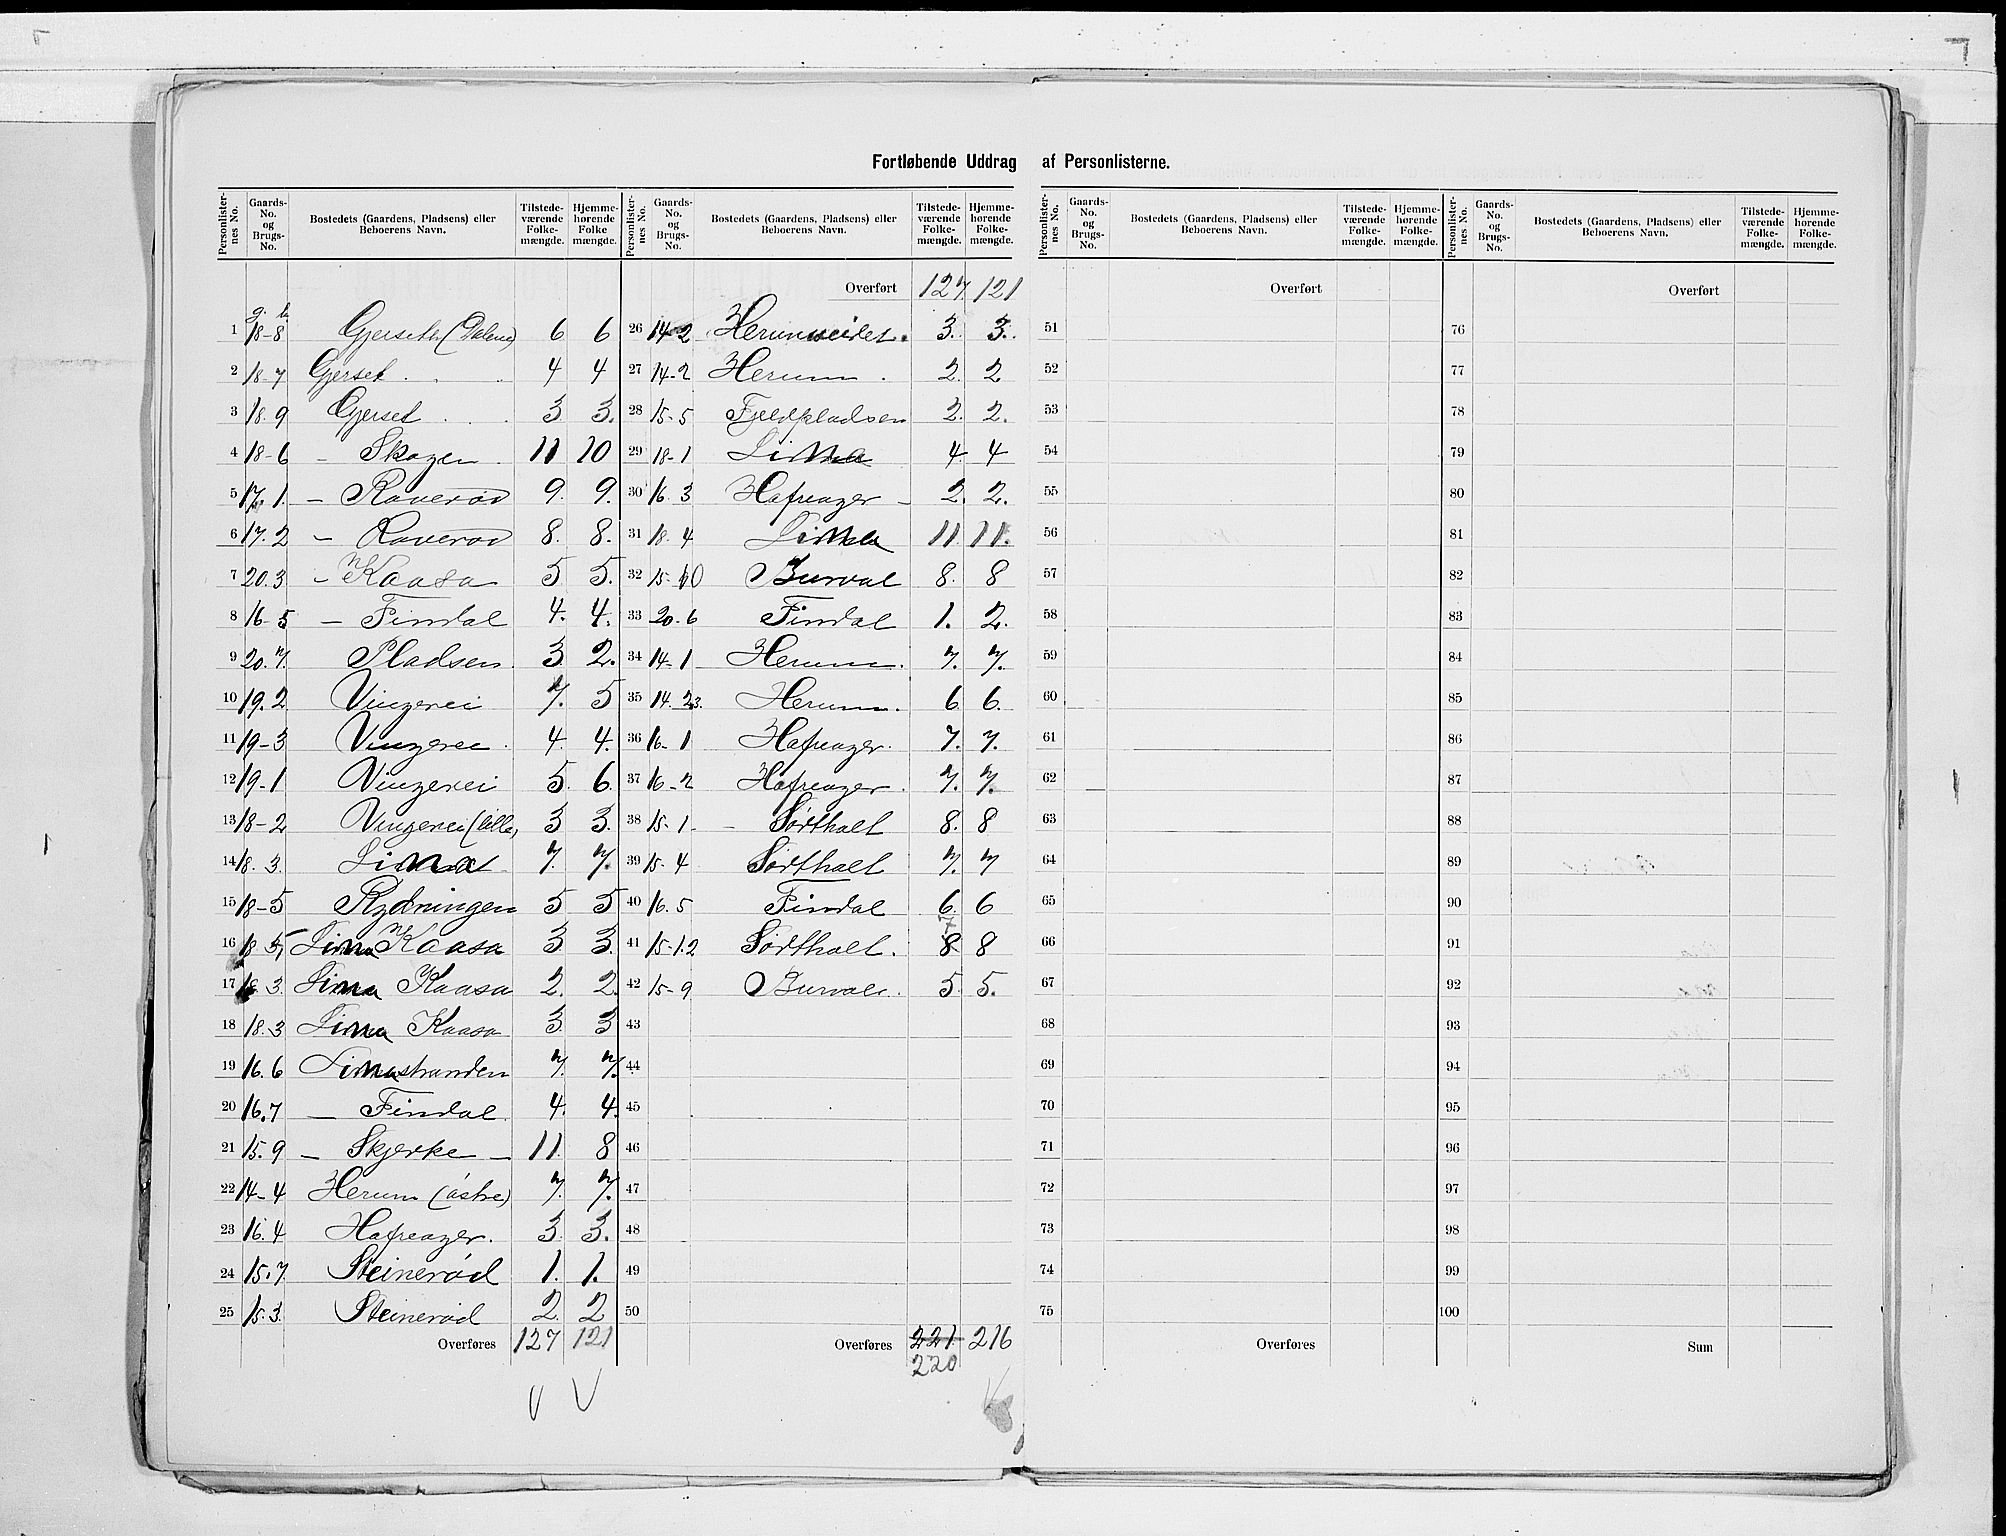 Fortløbende Uddrag af Personlisterne.
Personlisternes No. | Gaards-No. og Brugs-No. | Bostedets (Gaardens, Pladsens) eller Beboerens Navn. | Tilstedeværende Folkemængde. | Hjemmehørende Folkemængde.
g. b.
1 18-8 Gjerseth (Dalene) 6 6
2 18-7 Gjerset 4 4
3 18.9 Gjerset 3 3.
4 18-6 - Skogen 11 10
5 17.1. - Raverød 9. 9.
6 17.2 - Raverød 8. 8.
7 20.3 - Kaasa 5 5.
8 16-5 - Findal 4. 4.
9 20.7. Pladsen 3 2.
10 19.2 Vingerei 7. 5
11 19-3 Vingerei 4. 4.
12 19-1 Vingerei 5. 6.
13 18-2 Vingerei (lille) 3 3.
14 18.3. Lima 7. 7.
15 18-5 Rydningen 5 5
16 18.5 Lima Kaasa 3 3.
17 18.3 Lima Kaasa 2. 2.
18 18.3 Lima Kaasa 3 3
19 16.6 Limastranden 7. 7.
20 16.7 - Findal 4. 4.
21 15.9 - Skjerke - 11. 8
22 14-4 Herum (østre) 7. 7.
23 16.4 Hafreager. 3. 3.
24 15.7 Steinerød 1. 1.
25 15.3. Steinerød 2. 2
Overføres 127 121
Personlisternes No. | Gaards-No. og Brugs-No. | Bostedets (Gaardens, Pladsens) eller Beboerens Navn. | Tilstedeværende Folkemængde. | Hjemmehørende Folkemængde.
Overført 127 121
26 14-2 Herumseidet. 3. 3.
27 14-2 Herum. 2. 2
28 15-5 Fjeldpladsen 2. 2.
29 18-1 Lima 4. 4
30 16.3 Hafreager - 2. 2.
31 18.4 Lima 11 11.
32 15-10 Burval 8. 8
33 20.6 Findal 1. 2.
34 14-1 Herum. 7. 7.
35 14.2.3. Herum. 6 6.
36 16-1 Hafreager. 7. 7.
37 16-2 Hafreager. 7. 7.
38 15-1. - Sørthalt 8. 8
39 15-4 Sørthalt 7. 7
40 16.5 Findal 6. 6
41 15-1.2 Sørthalt. 7 8 8
42 15-9 Burval. 5. 5.
43
44
45
46
47
48
49
50
Overføres 221 216
220
Personlisternes No. | Gaards-No. og Brugs-No. | Bostedets (Gaardens, Pladsens) eller Beboerens Navn. | Tilstedeværende Folkemængde. | Hjemmehørende Folkemængde.
Overført
51
52
53
54
55
56
57
58
59
60
61
62
63
64
65
66
67
68
69
70
71
72
73
74
75
Overføres
Personlisternes No. | Gaards-No. og Brugs-No. | Bostedets (Gaardens, Pladsens) eller Beboerens Navn. | Tilstedeværende Folkemængde. | Hjemmehørende Folkemængde.
Overført
76
77
78
79
80
81
82
83
84
85
86
87
88
89
90
91
92
93
94
95
96
97
98
99
100
Sum